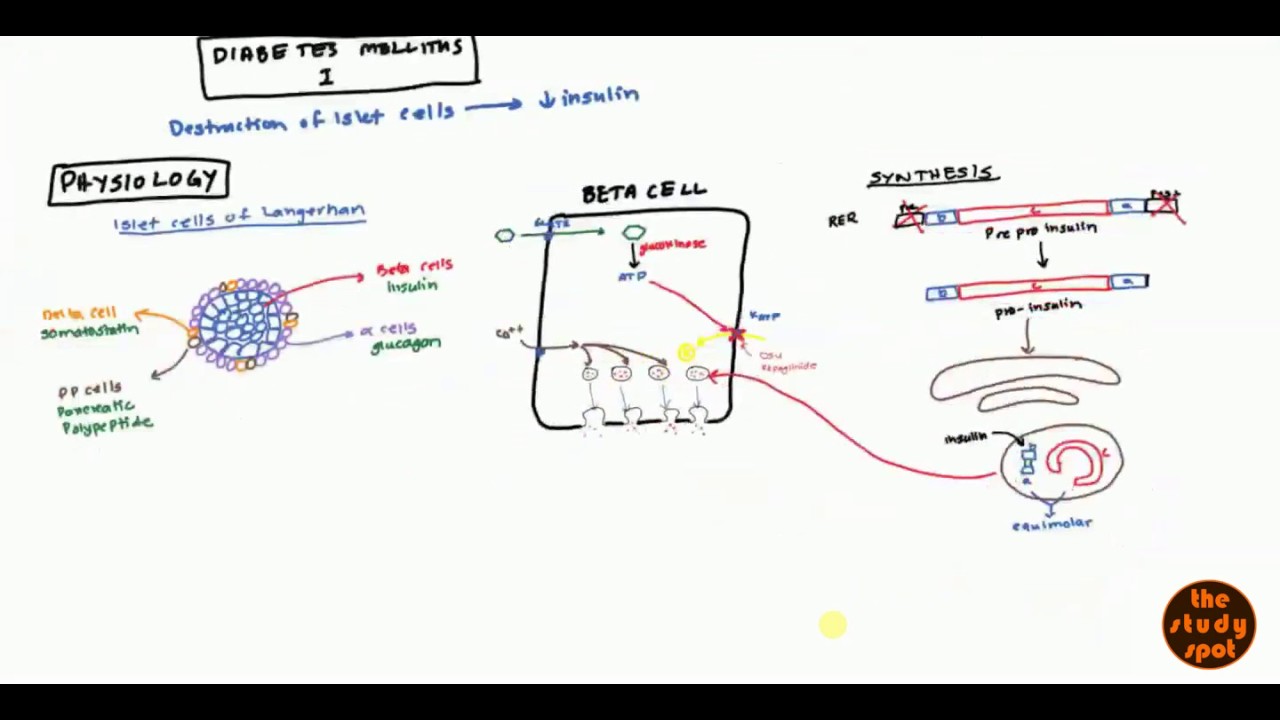 DIABETES MELLITUS
I
Destruction of Islet cells → ↓ insulin
PHYSIOLOGY
Islet cells of Langerhan
Beta cells
Insulin
Delta cell
somatostatin
α cells
glucagon
PP cells
Pancreatic
Polypeptide
BETA CELL
glucokinase
ATP
KATP
Ca++
OSU
SYNTHESIS
RER
b
c
a
Pre pro insulin
b
c
a
pro-insulin
insulin
b
a
c
equimolar
the
study
spot